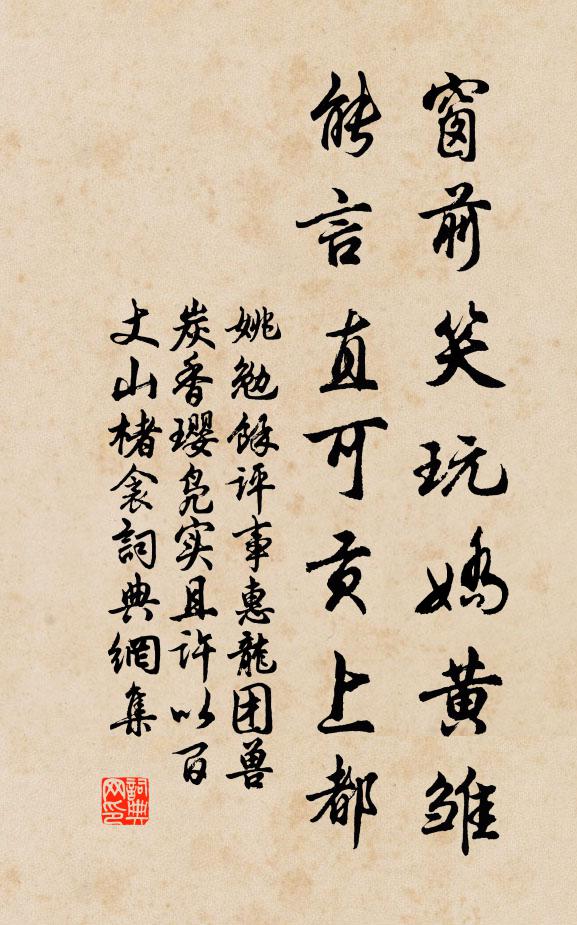 窗前笑玩娇黄雏
能言直可贡上都
姚勉餘评事惠龍团兽
炭香璎凫实且许以百
丈山楮衾詞典網集
詞典网印